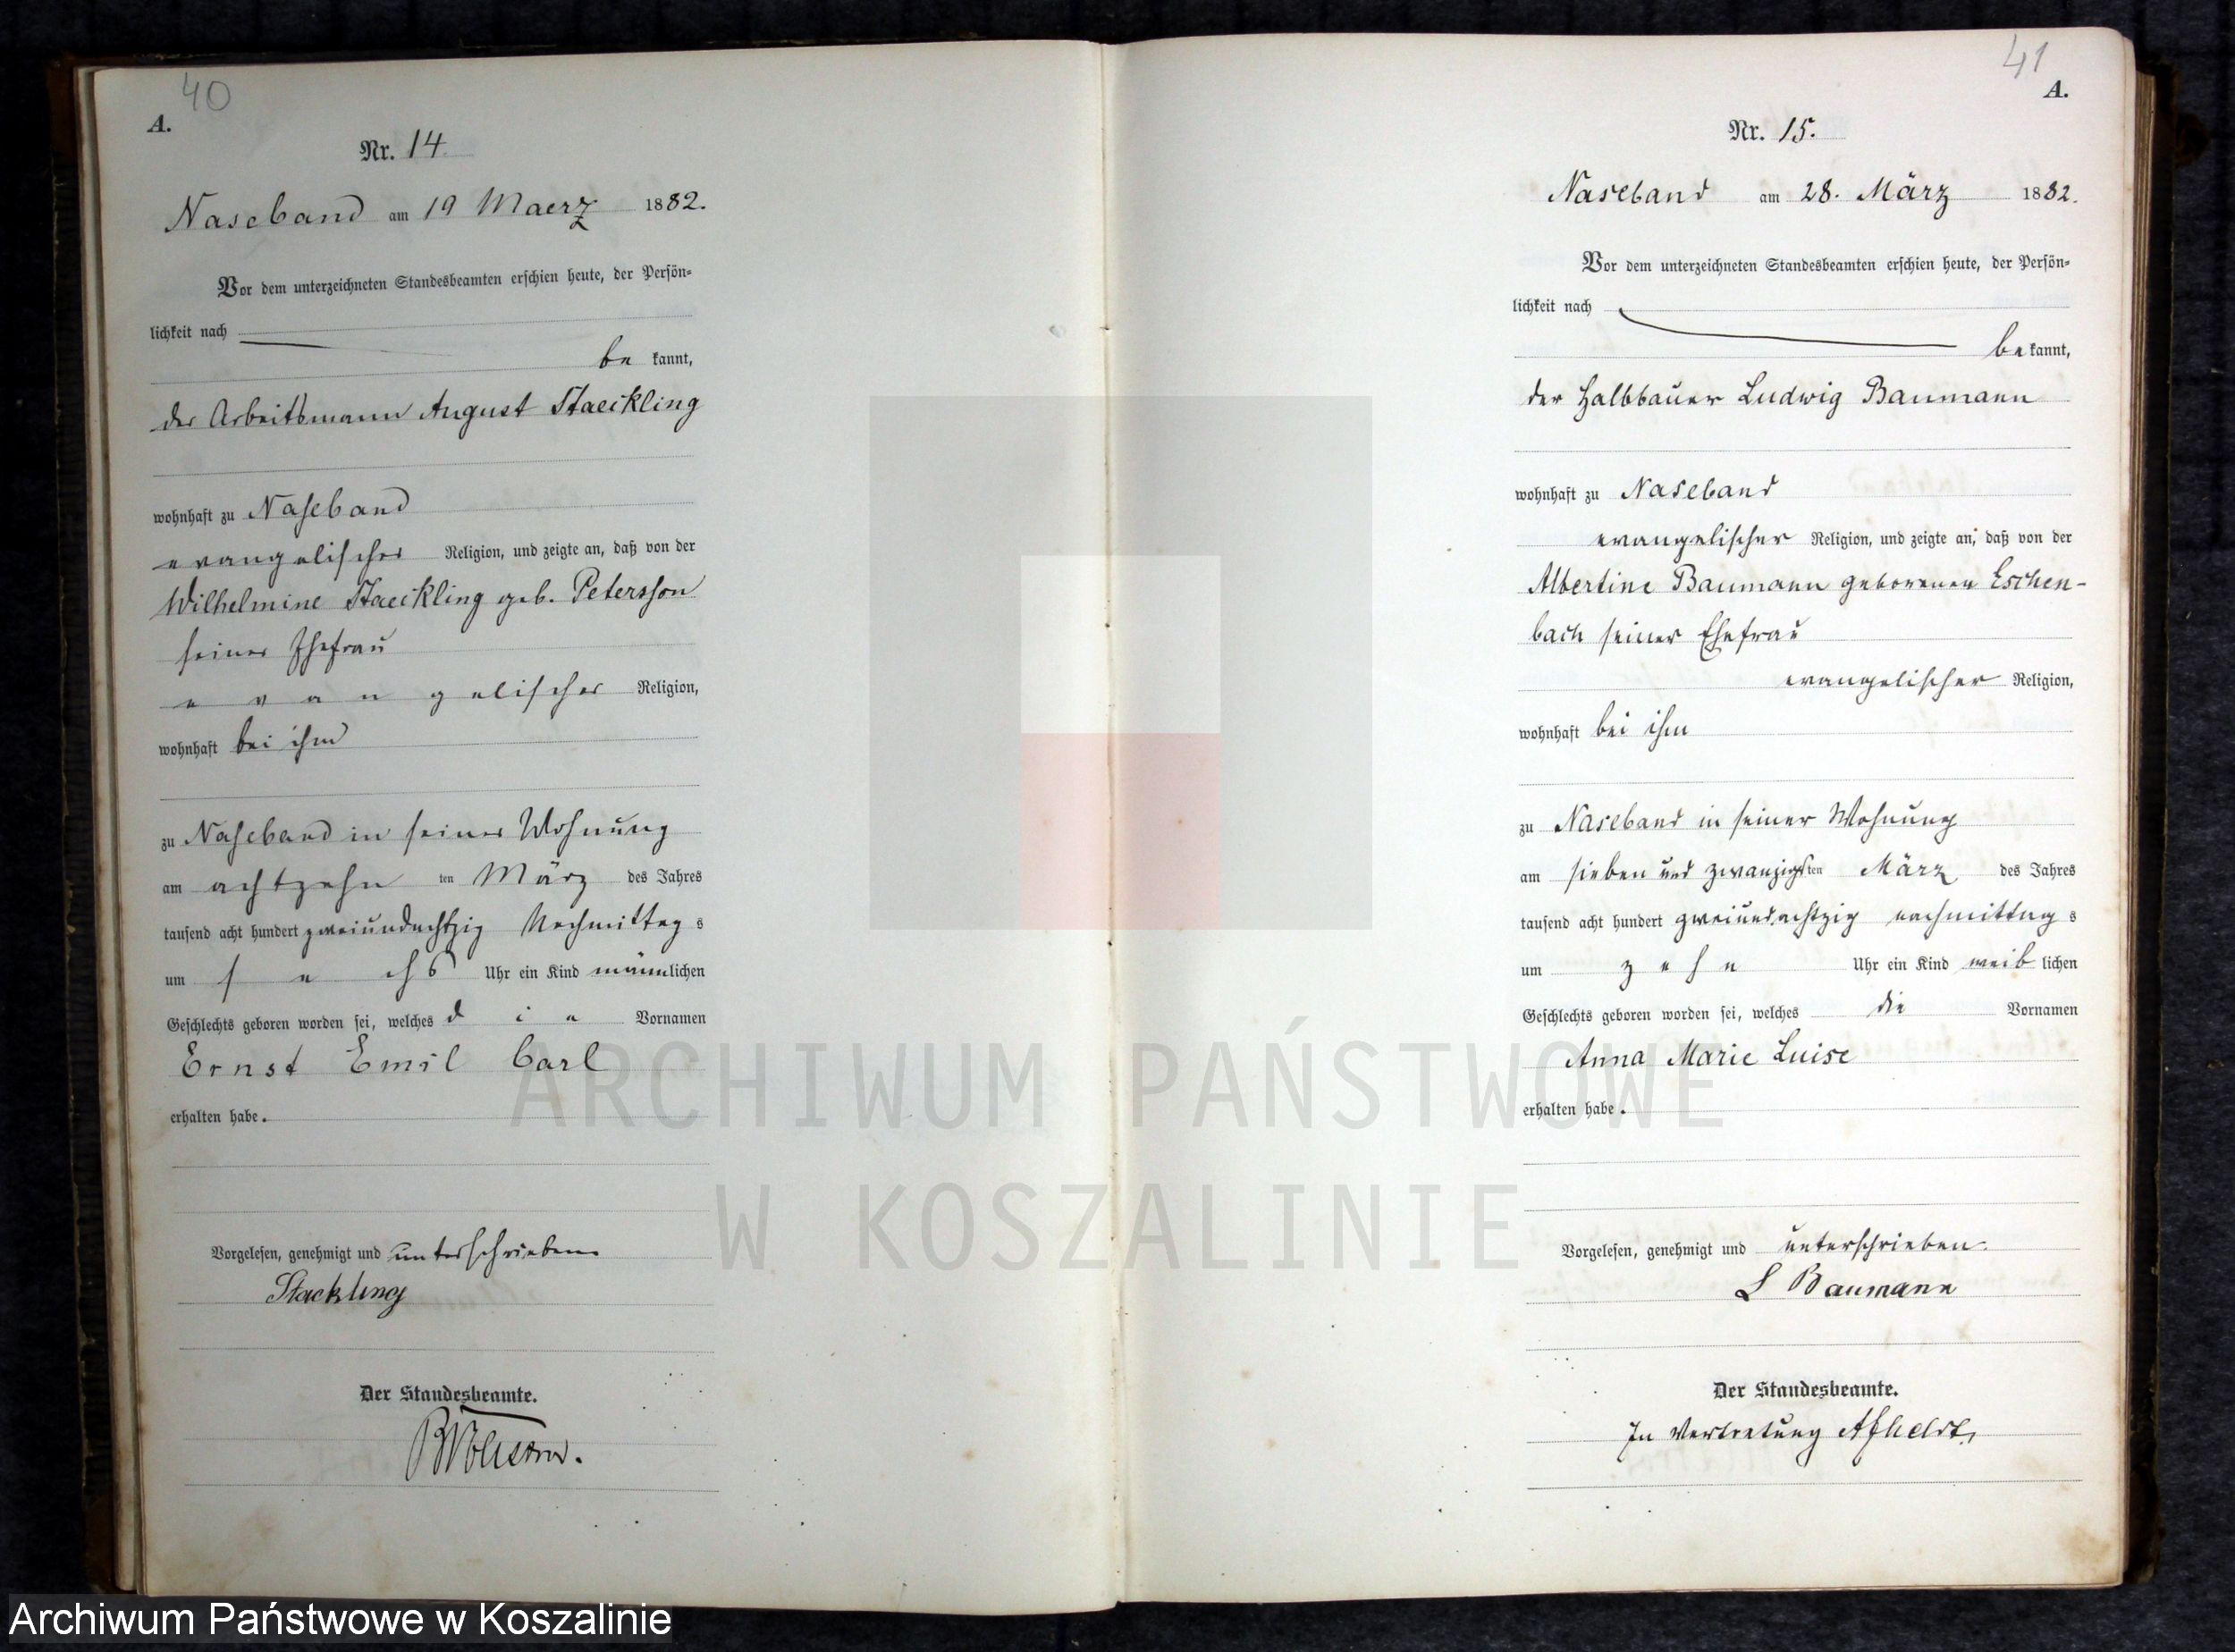 40
A.
Nr. 14
Naseband am 19 Maerz 1882.
Vor dem unterzeichneten Standesbeamten erschien heute, der Persön-
lichkeit nach
be kannt,
der Arbeitsmann August Staeckling
wohnhaft zu Naseband
evangelischer Religion, und zeigte an, daß von der
Wilhelmine Staeckling geb. Petersson
seiner Ehefrau
evangelischer Religion,
wohnhaft bei ihm
zu Naseband in seiner Wohnung
am achtzehn ten März des Jahres
tausend acht hundert zweiundachtzig Nachmittag s
um sechs Uhr ein Kind männlichen
Geschlechts geboren worden sei, welches die Vornamen
Ernst Emil Carl
erhalten habe.
Vorgelesen, genehmigt und unterschrieben
Stackling
Der Standesbeamte.
41
A.
Nr. 15.
Naseband am 28. März 1882.
Vor dem unterzeichneten Standesbeamten erschien heute, der Persön-
lichkeit nach
be kannt,
der Halbbauer Ludwig Baumann
wohnhaft zu Naseband
evangelischer Religion, und zeigte an, daß von der
Albertine Baumann geborenen Eschen-
bach seiner Ehefrau
evangelischer Religion,
wohnhaft bei ihm
zu Naseband in seiner Wohnung
am sieben und zwanzigsten März des Jahres
tausend acht hundert zweiundachtzig nachmittag s
um zehn Uhr ein Kind weib lichen
Geschlechts geboren worden sei, welches die Vornamen
Anna Marie Luise
erhalten habe.
Vorgelesen, genehmigt und unterschrieben.
L Baumann
Der Standesbeamte.
In Vertretung Afheldt
ARCHIWUM PAŃSTWOWE
W KOSZALINIE
Archiwum Państwowe w Koszalinie